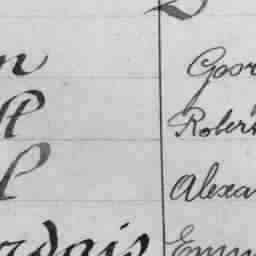 n Geor
ll Rober
l Alexa
rdais Emm